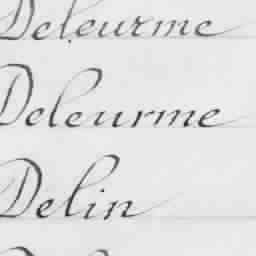 Deleurme
Deleurme
Delin